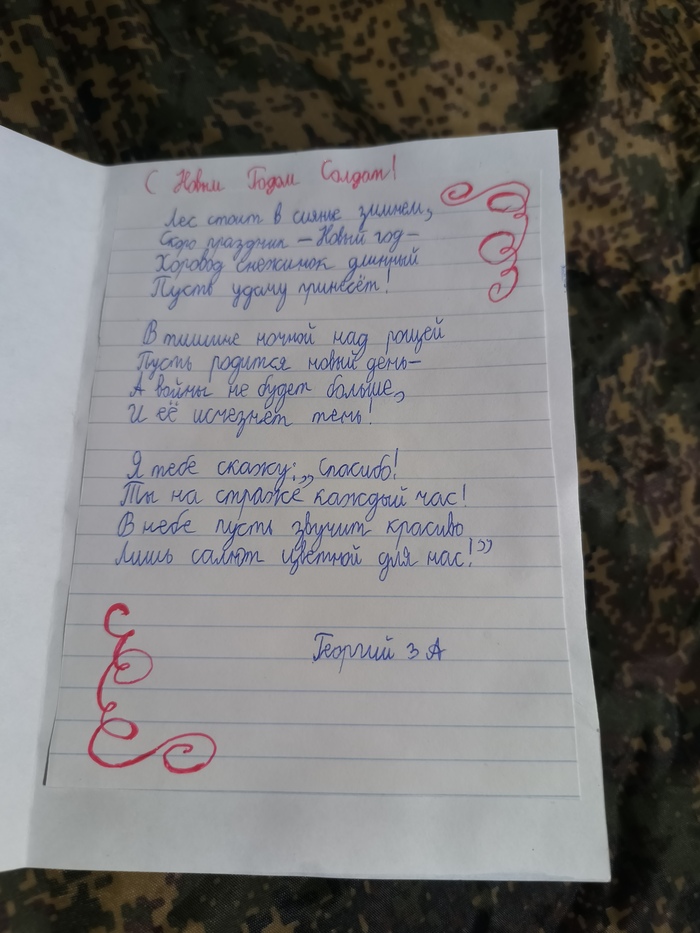 С Новым Годом Солдат!
Лес стоит в сиянье зимнем,
Скоро праздник – Новый год –
Хоровод снежинок длинный
Пусть удачу принесёт!
В тишине ночной над рощей
Пусть родится новый день –
А войны не будет больше,
И её исчезнет тень!
Я тебе скажу: „Спасибо!
Ты на страже каждый час!
В небе пусть звучит красиво
Лишь салют цветной для нас!”
Георгий 3 А